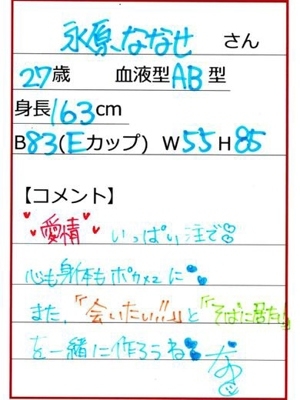 永原ななせ さん
27歳 血液型AB型
身長163cm
B83(Eカップ) W55H85
【コメント】
愛情いっぱい注ぐ
心も身体もポカポカに
また、「会いたい!!」と「そばに居たい」
を一緒に作ろうね